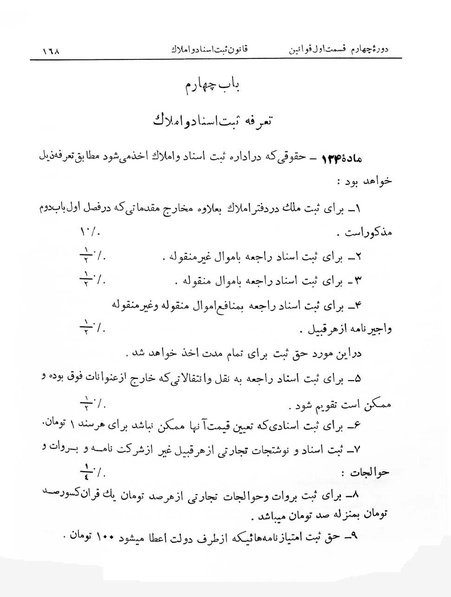 دورهٔ چهارم قسمت اول قوانین قانون ثبت اسناد و املاک ۱۶۸
باب چهارم
تعرفه ثبت اسناد و املاک
مادهٔ ۱۳۴ ــ حقوقی که در اداره ثبت اسناد و املاک اخذ می شود مطابق تعرفه ذیل
خواهد بود :
۱ــ برای ثبت ملک در دفتر املاک بعلاوه مخارج مقدماتی که در فصل اول باب دوم
مذکور است .
۲ــ برای ثبت اسناد راجعه باموال غیر منقوله . ۱/۲ ٪
۳ــ برای ثبت اسناد راجعه باموال منقوله . ۱/۲ ٪
۴ــ برای ثبت اسناد راجعه بمنافع اموال منقوله وغیر منقوله
واجیر نامه از هر قبیل . ۱/۲ ٪
در این مورد حق ثبت برای تمام مدت اخذ خواهد شد .
۵ــ برای ثبت اسناد راجعه به نقل وانتقالاتی که خارج از عنوانات فوق بوده و
ممکن است تقویم شود . ۱/۲ ٪
۶ــ برای ثبت اسنادی که تعیین قیمت آنها ممکن نباشد برای هر سند ۱ تومان.
۷ــ ثبت اسناد و نوشتجات تجارتی از هر قبیل غیر از شرکت نامه و بروات و
حوالجات : ۱/۴ ٪
۸ــ برای ثبت بروات وحوالجات تجارتی از هر صد تومان یك قران کسور صد
تومان بمنزله صد تومان میباشد .
۹ــ حق ثبت امتیاز نامه هائیکه از طرف دولت اعطا میشود ۱۰۰ تومان .